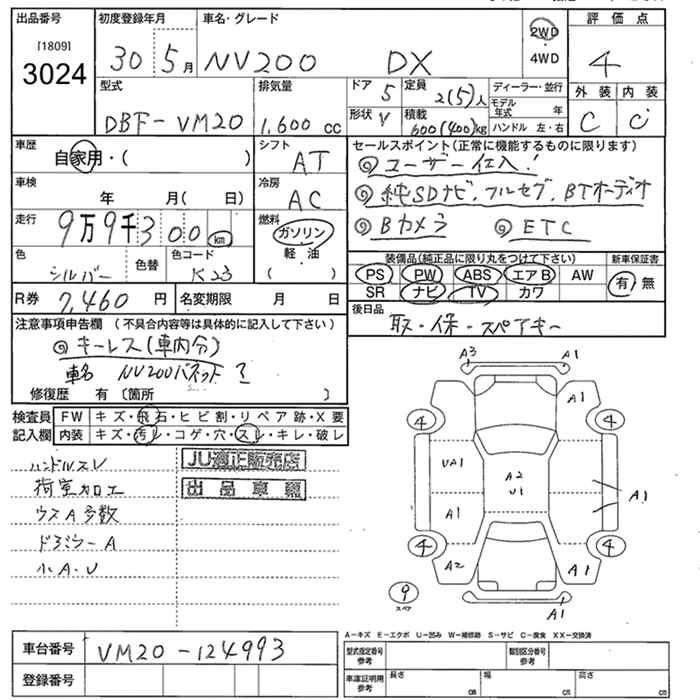 出品番号
[1809]
3024
初度登録年月
30 5月
車名・グレード
NV200 DX
2WD
・
4WD
評価点
4
型式
DBF-VM20
排気量
1,600 cc
ドア 5
定員 2(5)人
形状 V
積載 600(400)kg
ディーラー・並行
モデル年式 年
ハンドル 左・右
外装 内装
C C
車歴
自家用・( )
シフト
AT
車検
年 月( 日)
冷房
AC
走行
9万9千300km
燃料
ガソリン
・
軽油
( )
色
シルバー
色替
色コード
K23
R券 7,460 円
名変期限 月 日
セールスポイント(正常に機能するものに限ります)
◎ユーザー仕入!
◎純SDナビ.フルセグ.BTオーディオ
◎Bカメラ ◎ETC
装備品(純正品に限り丸をつけて下さい)
新車保証書
PS PW ABS エアB AW
SR ナビ TV カワ
有・無
後日品
取・保・スペアキー
注意事項申告欄 (不具合内容等は具体的に記入して下さい)
◎キーレス(車内分)
車名 NV200バネット
修復歴 有〔箇所 〕
検査員記入欄
FW キズ・飛石・ヒビ割・リペア跡・X要
内装 キズ・汚レ・コゲ・穴・スレ・キレ・破レ
ハンドルスレ
荷室加工
ウスA多数
ドアミラーA
小A.U
JU適正販売店
出品車輌
A3 A1
4 A1 4
UA1 A2 U1 A1
A1
4 A2 A1 4
9 スペア
A1
A-キズ E-エクボ U-凹み W-補修跡 S-サビ C-腐食 XX-交換済
車台番号 VM20-124993
登録番号
型式指定番号 参考
類別区分番号 参考
車庫証明用 参考
長さ cm 幅 cm 高さ cm